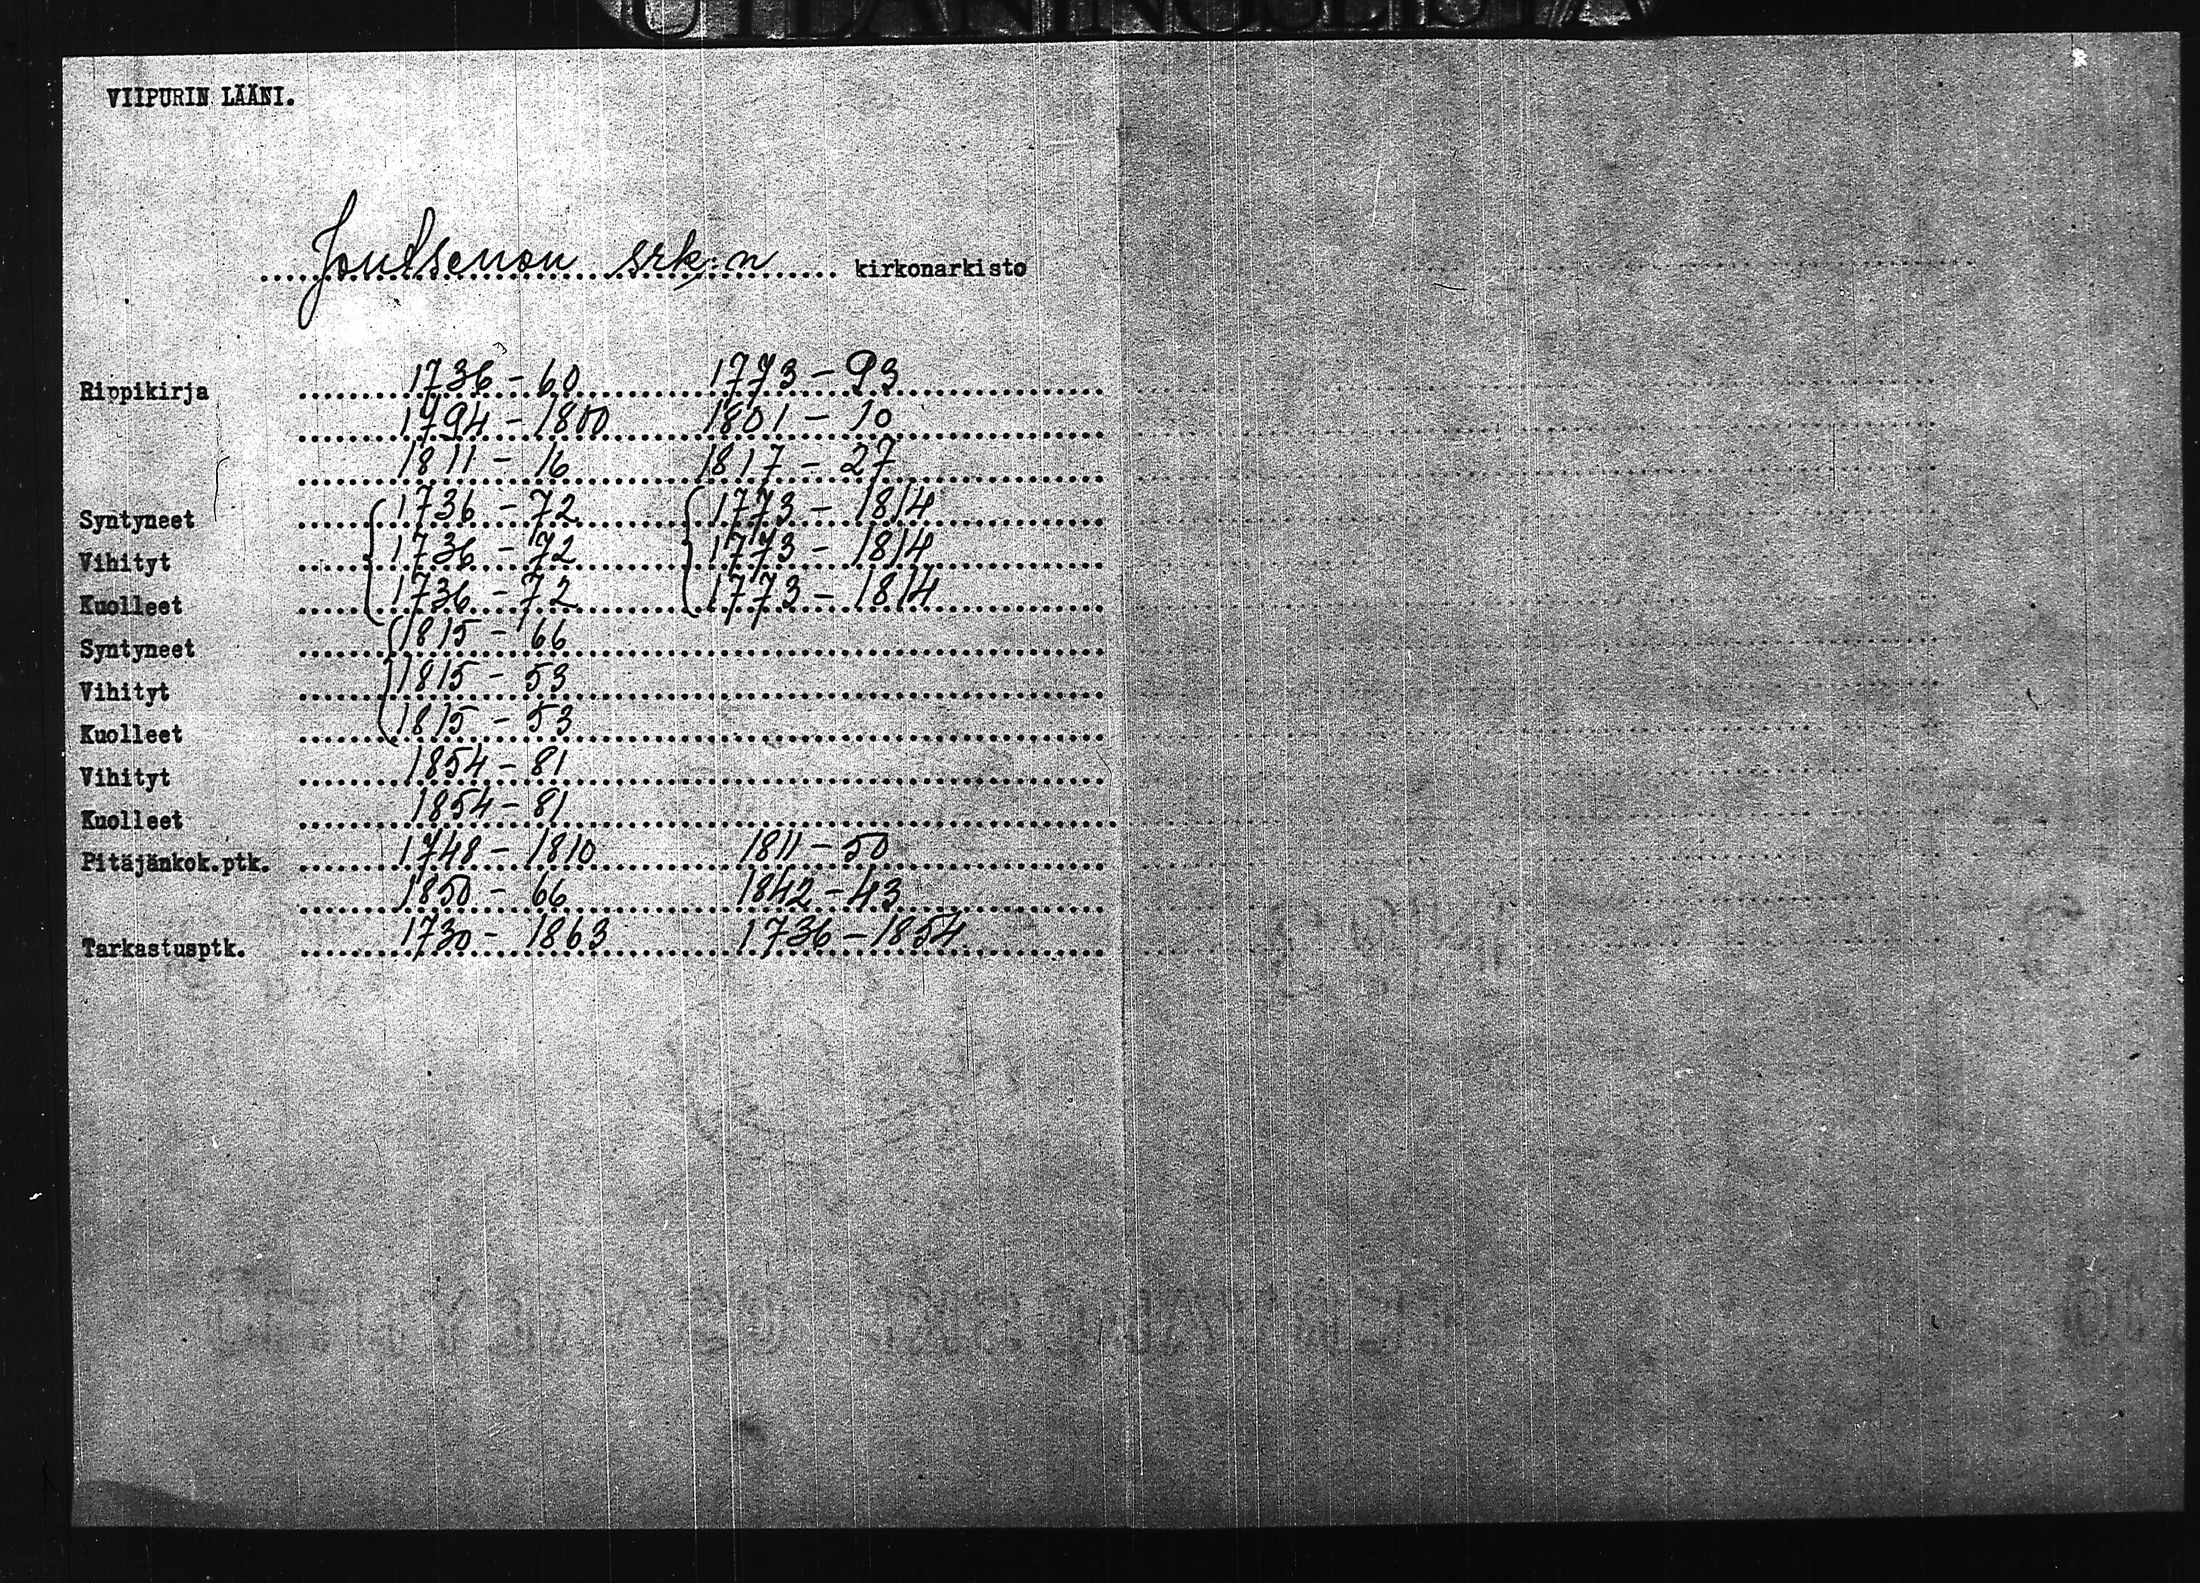 VIIPURIN LÄÄNI.
Joutsenon srk:n kirkonarkisto
Rippikirja 1736-60 1773-93
1794-1800 1801-10
1811-16 1817-27
Syntyneet 1736-72 1773-1814
Vihityt 1736-72 1773-1814
Kuolleet 1736-72 1773-1814
Syntyneet 1815-66
Vihityt 1815-53
Kuolleet 1815-53
Vihityt 1854-81
Kuolleet 1854-81
Pitäjänkok.ptk. 1748-1810 1811-50
1850-66 1842-43
Tarkastusptk. 1730-1863 1736-1854